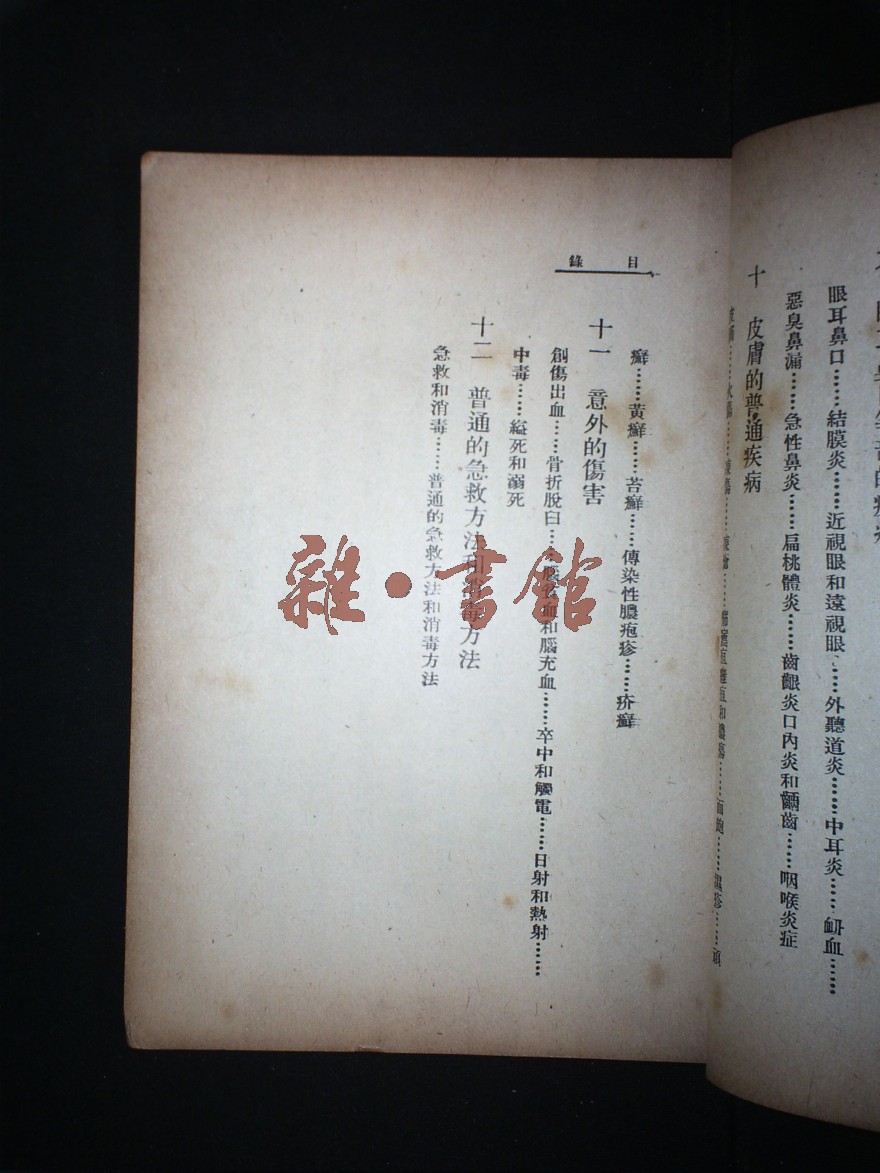 眼耳鼻口……結膜炎……近視眼和遠視眼……外聽道炎……中耳炎……衄血……
惡臭鼻漏……急性鼻炎……扁桃體炎……齒齦炎口內炎和齲齒……咽喉炎症
十 皮膚的普通疾病
目錄
癬……黃癬……苔癬……傳染性膿疱疹……疥癬
十一 意外的傷害
創傷出血……骨折脫臼……和腦充血……卒中和觸電……日射和熱射……
中毒……縊死和溺死
十二 普通的急救方法和消毒方法
急救和消毒……普通的急救方法和消毒方法
雜·書館